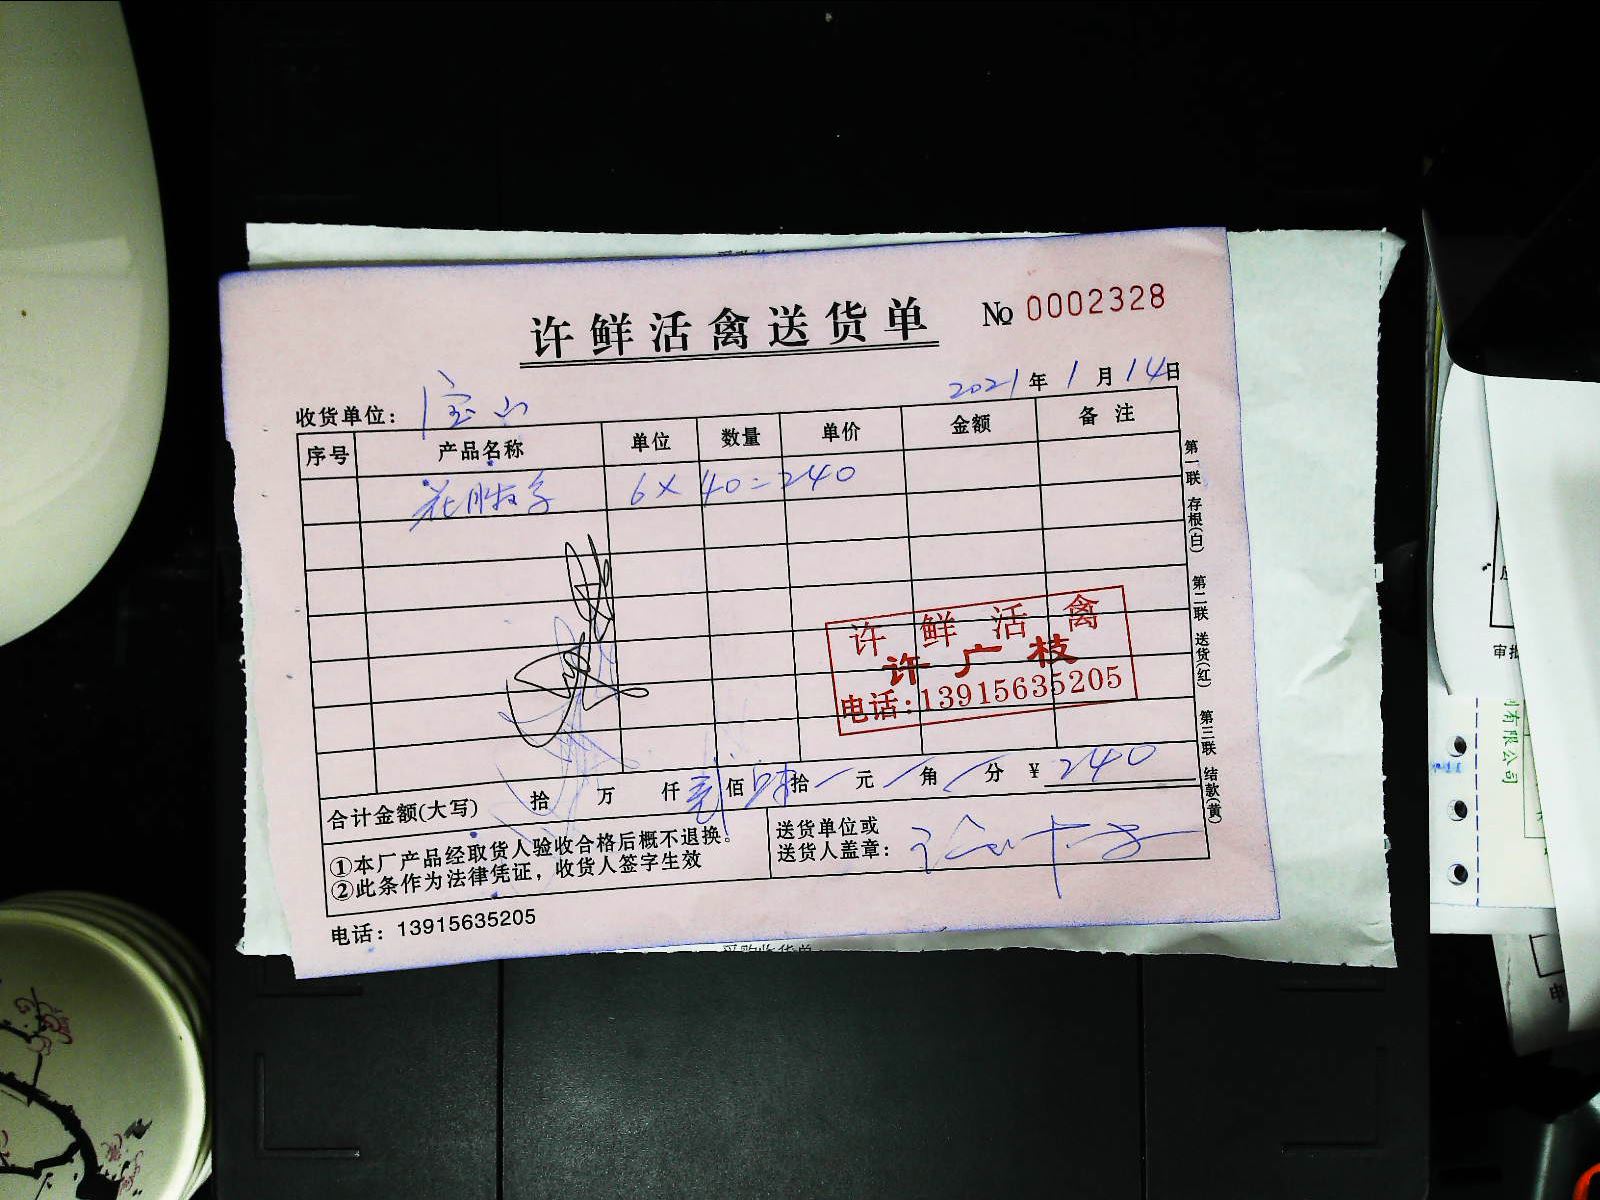 许鲜活禽送货单 № 0002328
收货单位: 宝山 2021年1月14日
序号 产品名称 单位 数量 单价 金额 备注
花胜子 6×40=240
许鲜活禽
许广枝
电话:13915635205
合计金额(大写) 拾 万 仟 贰佰 肆拾 元 角 分 ¥ 240
①本厂产品经取货人验收合格后概不退换。
②此条作为法律凭证，收货人签字生效
送货单位或
送货人盖章:
电话: 13915635205
第一联 存根(白) 第二联 送货(红) 第三联 结款(黄)
采购收货单
有限公司
审批